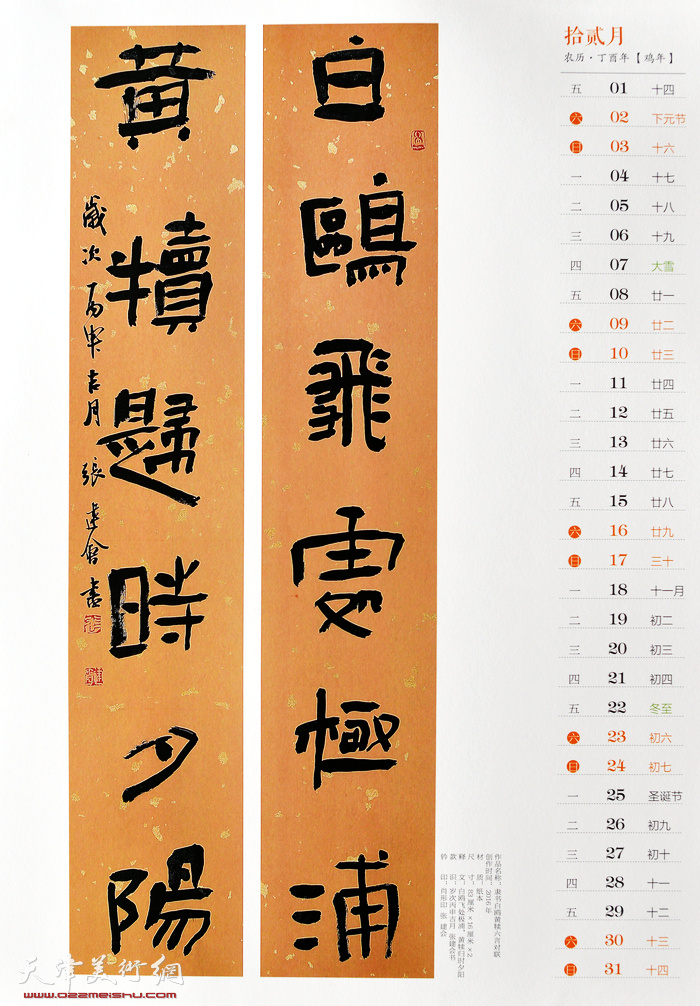 白鷗飛處極浦
黃犢歸時夕陽
歲次丙申吉月 張建會書
拾贰月
农历·丁酉年【鸡年】
五 01 十四
六 02 下元节
日 03 十六
一 04 十七
二 05 十八
三 06 十九
四 07 大雪
五 08 廿一
六 09 廿二
日 10 廿三
一 11 廿四
二 12 廿五
三 13 廿六
四 14 廿七
五 15 廿八
六 16 廿九
日 17 三十
一 18 十一月
二 19 初二
三 20 初三
四 21 初四
五 22 冬至
六 23 初六
日 24 初七
一 25 圣诞节
二 26 初九
三 27 初十
四 28 十一
五 29 十二
六 30 十三
日 31 十四
作品名称：隶书白鸥黄犊六言对联
创作时间：2016年
材 质：纸本
尺 寸：83厘米×16厘米×2
释 文：白鸥飞处极浦，黄犊归时夕阳
款 识：岁次丙申吉月 张建会书
钤 印：肖形印 张 建会
天津美術網
www.022meishu.com